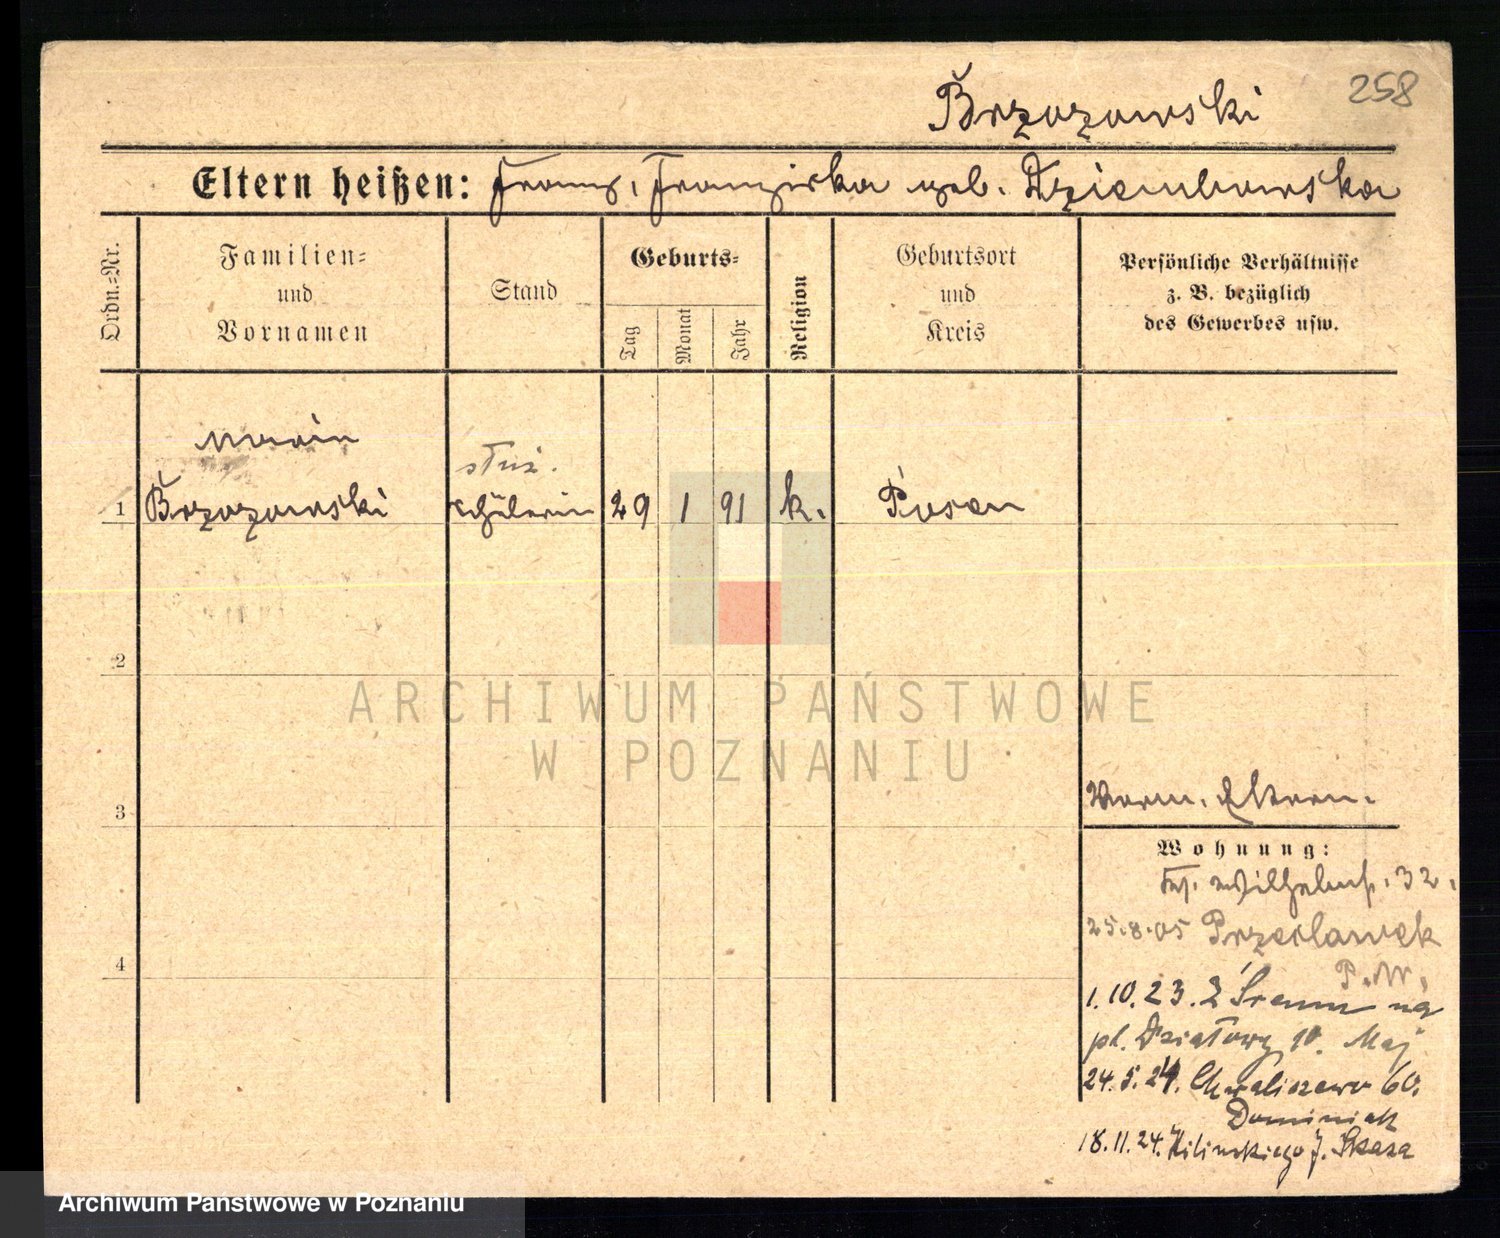 258
Brzozowski
Eltern heißen: Franz, Franziska geb. Dziembowska
Ordn.=Nr.
Familien=
und
Vornamen
Stand
Geburts=
Tag
Monat
Jahr
Religion
Geburtsort
und
Kreis
Persönliche Verhältnisse
z. B. bezüglich
des Gewerbes usw.
Maria
służ.
1 Brzozowski Schülerin 29 1 91 k. Posen
2
ARCHIWUM PAŃSTWOWE
W POZNANIU
3
Vorm. Eltern.
Wohnung:
Wilhelmstr. 32.
25.8.05
4
1.10.23. Z Śremu na
pl. Działowy 10. Maj
24.5.24. Chwaliszewo 60.
Dominiak
18.11.24. Kilińskiego 7. Skasa
Archiwum Państwowe w Poznaniu